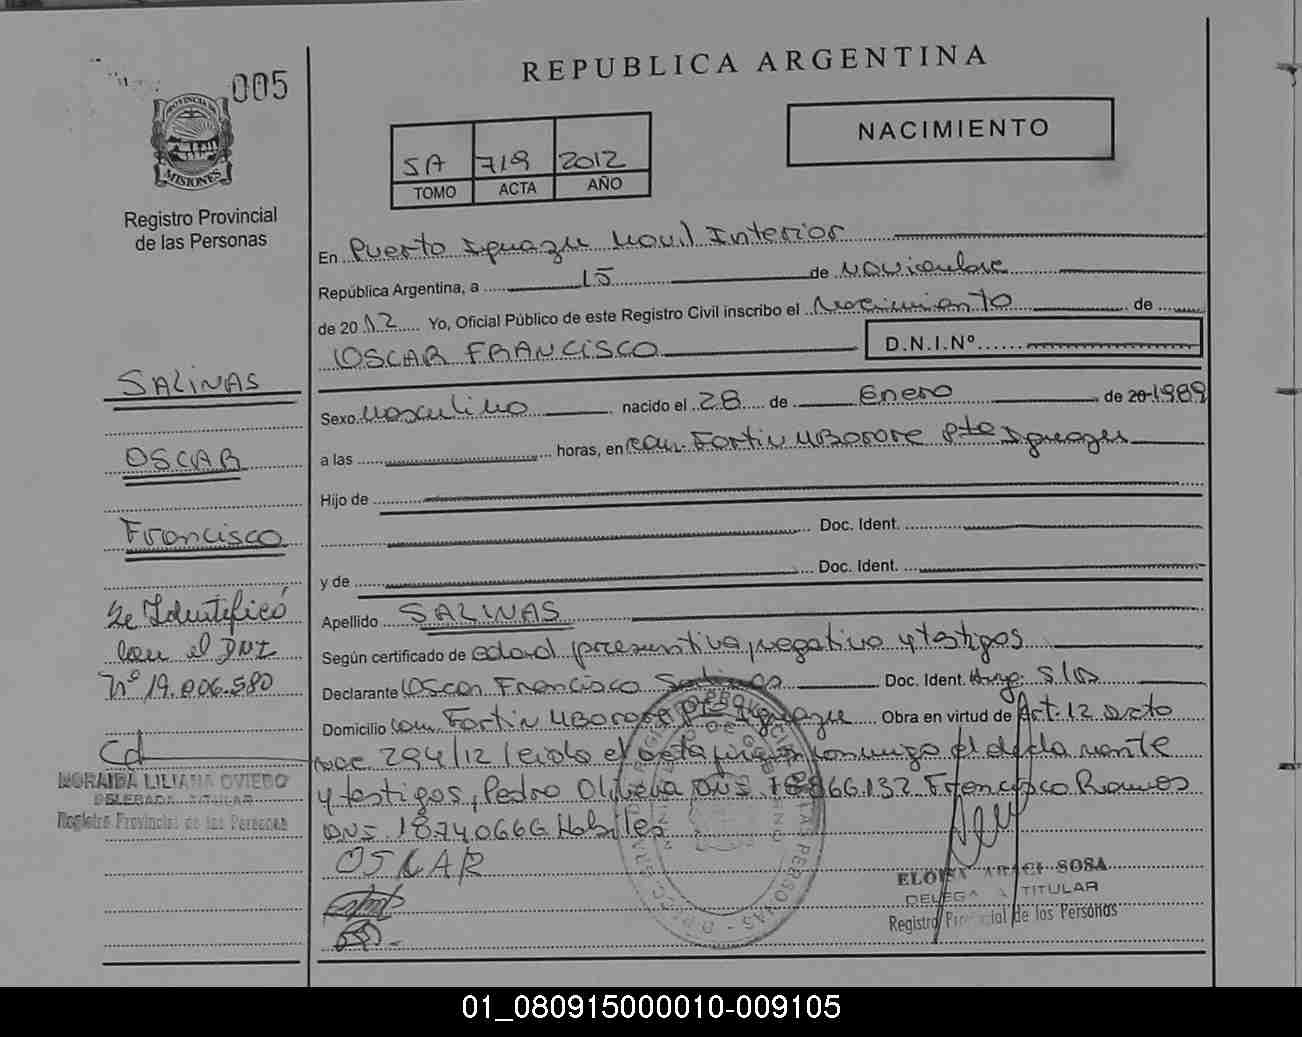 REPUBLICA ARGENTINA
005
NACIMIENTO
PROVINCIA DE
MISIONES
5A 719 2012
TOMO ACTA AÑO
Registro Provincial
de las Personas
En Puerto Iguazu Movil Interior
República Argentina, a 15 de Noviembre
de 2012 Yo, Oficial Público de este Registro Civil inscribo el Nacimiento de
OSCAR FRANCISCO D.N.I.Nº
SALINAS
OSCAR
Francisco
Se Identificó
con el DNI
Nº 19.006.580
MORAIBA LILIANA OVIEDO
DELEGADA TITULAR
Registro Provincial de las Personas
Sexo Masculino nacido el 28 de Enero de 20 1989
a las horas, en com. Fortin MBororé Pto Iguazu
Hijo de
Doc. Ident.
y de Doc. Ident.
Apellido SALINAS
Según certificado de edad presuntiva, negativo y testigos
Declarante Oscar Francisco Salinas Doc. Ident. Arg. S/D
Domicilio com Fortin MBororé Pto Iguazu Obra en virtud de Art. 12 Dcto
294/12 leida el acta firman conmigo el declarante
y testigos, Pedro Olivera DNI 18866.132 Francisco Ramos
DNI 18740666 Habiles
OSCAR
ELOISA ARACI SOSA
DELEGADA TITULAR
Registro Provincial de las Personas
01_080915000010-009105